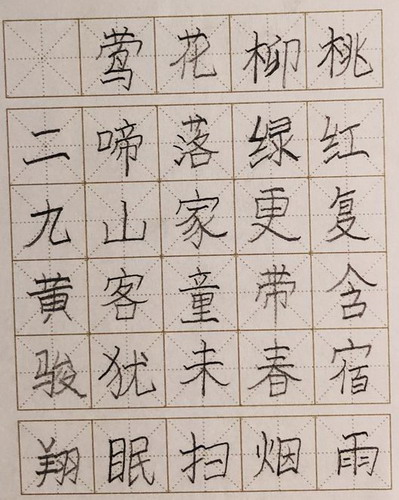 桃红复含宿雨
柳绿更带春烟
花落家童未扫
莺啼山客犹眠
二九黄骏翔